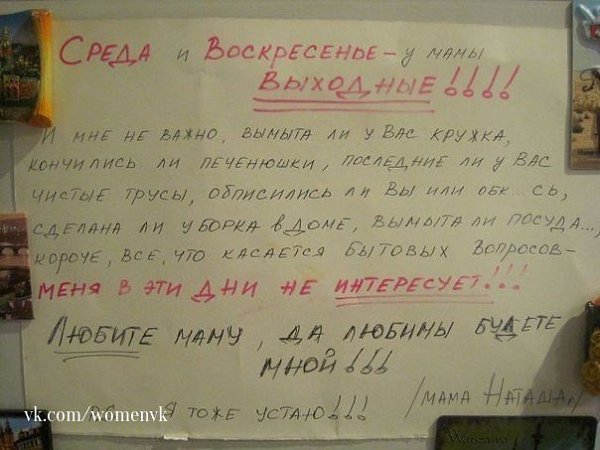 Среда и Воскресенье – у мамы
выходные!!!!
И мне не важно, вымыта ли у Вас кружка,
кончились ли печенюшки, последние ли у Вас
чистые трусы, обписились ли Вы или обк...сь,
сделана ли уборка в доме, вымыта ли посуда...,
короче, все, что касается бытовых вопросов–
меня в эти дни не интересует!!!
Любите маму, да любимы будете
мной!!!
Я тоже устаю!!!
/мама Наташа/
vk.com/womenvk
Warszawa